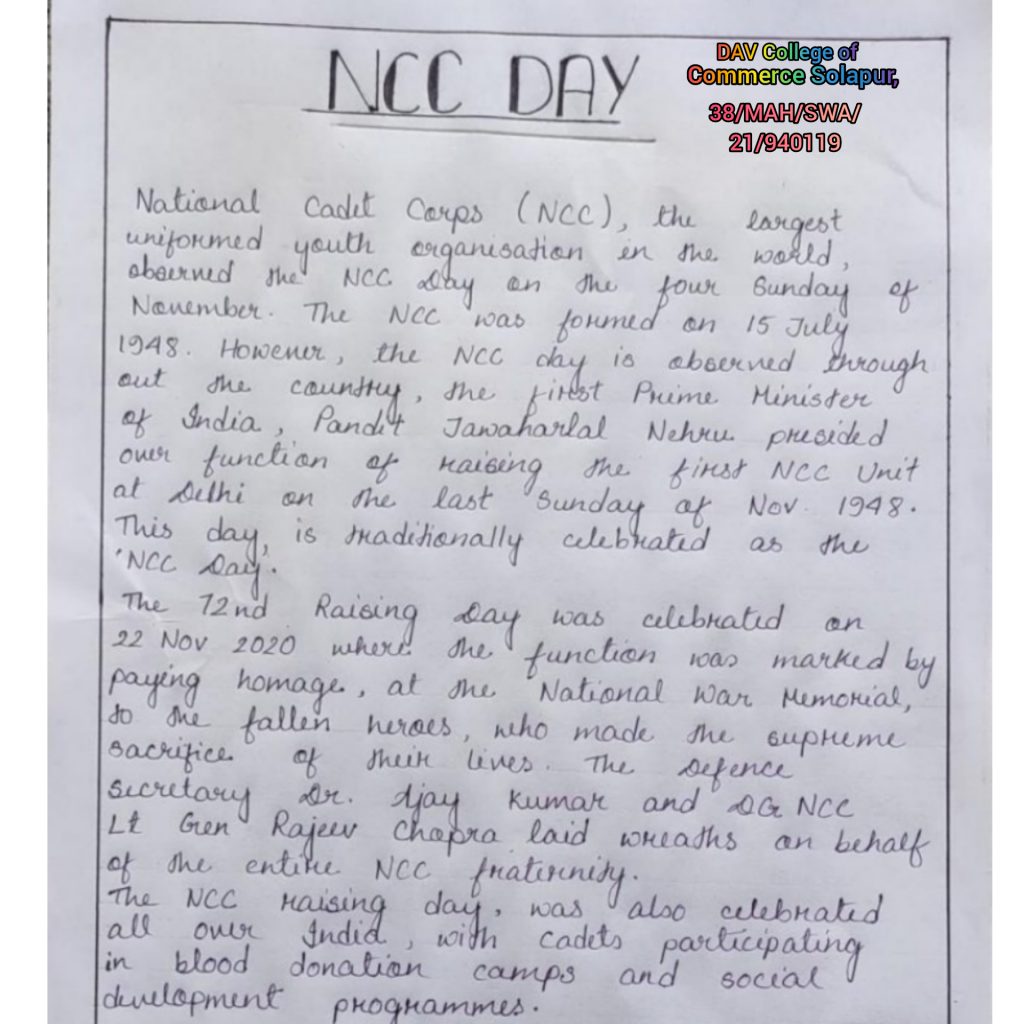 NCC DAY
DAV College of
Commerce Solapur,
38/MAH/SWA/
21/940119
National Cadet Corps (NCC), the largest
uniformed youth organisation in the world,
observed the NCC Day on the four Sunday of
November. The NCC was formed on 15 July
1948. However, the NCC day is observed through
out the country, the first Prime Minister
of India, Pandit Jawaharlal Nehru presided
over function of raising the first NCC Unit
at Delhi on the last Sunday of Nov. 1948.
This day, is traditionally celebrated as the
'NCC Day'.
The 72nd Raising Day was celebrated on
22 Nov 2020 where the function was marked by
paying homage, at the National War Memorial,
to the fallen heroes, who made the supreme
sacrifice of their lives. The Defence
secretary Dr. Ajay Kumar and DG NCC
Lt Gen Rajeev Chopra laid wreaths on behalf
of the entire NCC fraternity.
The NCC raising day, was also celebrated
all over India, with cadets participating
in blood donation camps and social
development programmes.